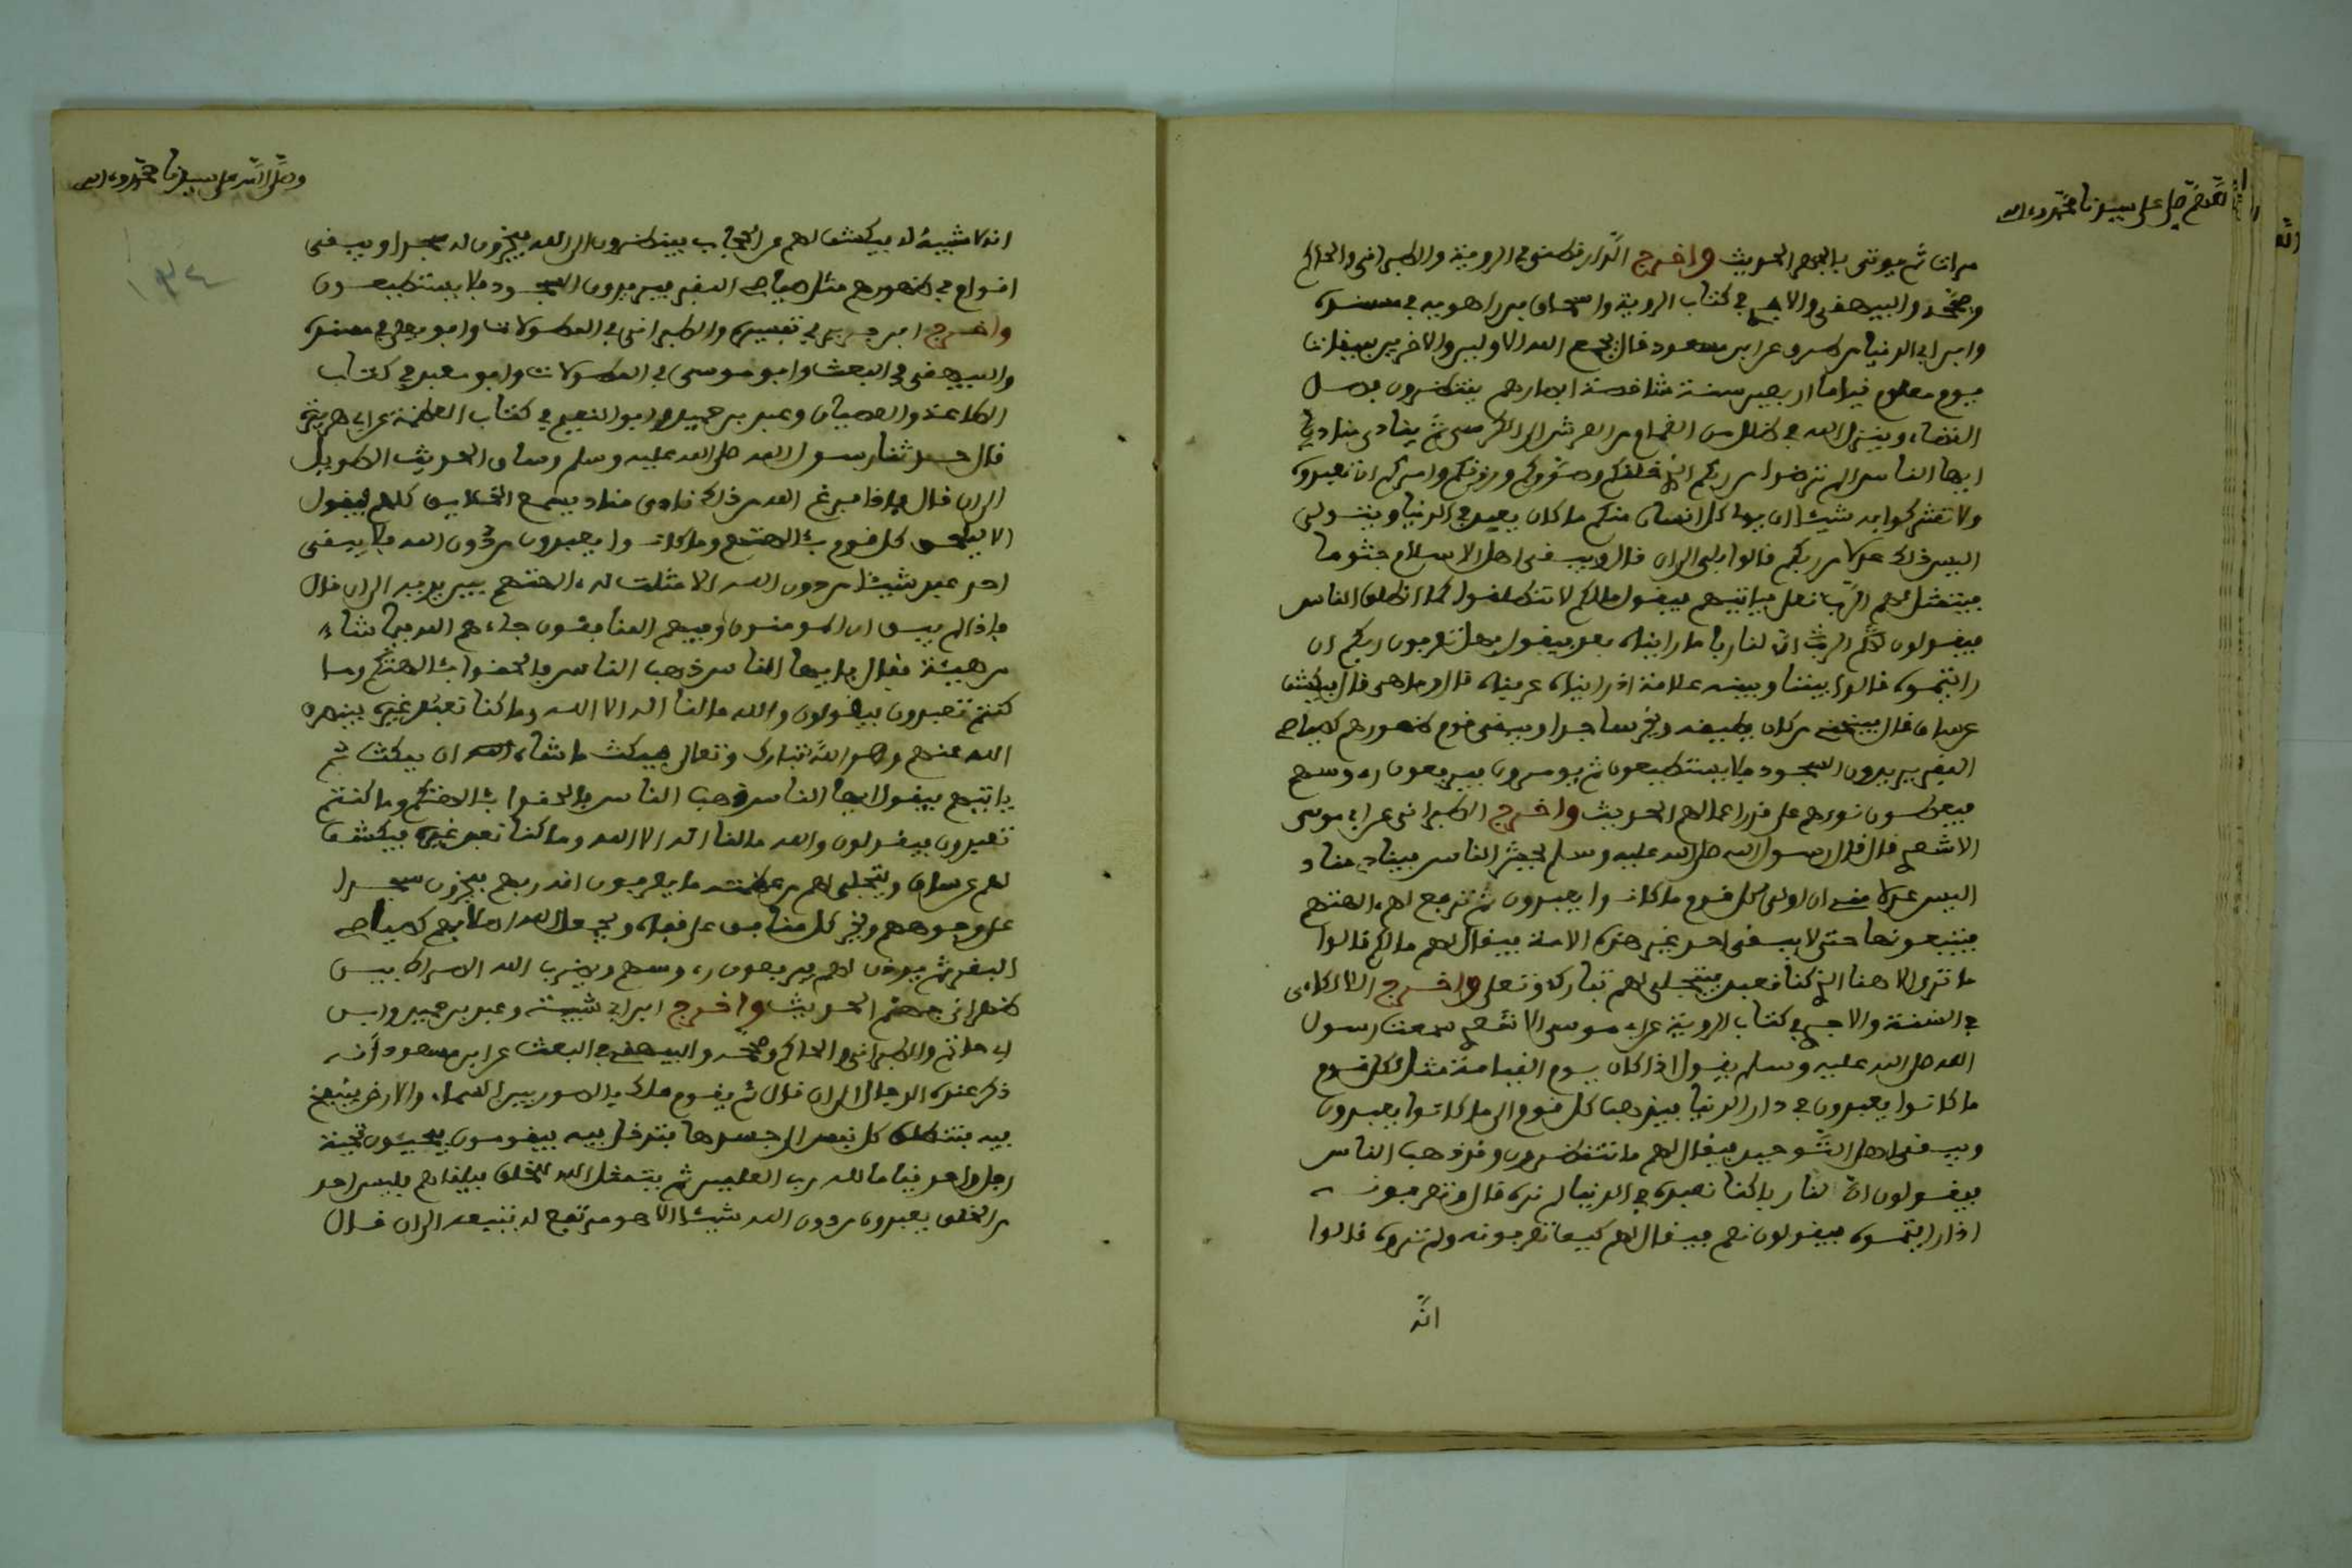 اللهم صل على سيدنا محمد وءاله
مرات ثم يوتى بالجسر الحديث واخرج الدارقطني في الروية والطبراني والحاكم
وصححه والبيهقي والاجري في كتاب الروية واسحاق بن راهويه في مسنده
وابن ابي الدنيا من طرق عن ابن مسعود قال يجمع الله الاولين والاخرين لميقات
يوم معلوم قياما اربعين سنة شاخصة ابصارهم ينتظرون فصل
القضاء وينزل الله في ظلل من الغمام من العرش الى الكرسي ثم ينادي مناد يا
ايها الناس الم ترضوا من ربكم الذي خلقكم وصوركم ورزقكم وامركم ان تعبدوه
ولا تشركوا به شيئا ان يولي كل انسان منكم ما كان يعبد في الدنيا ويتولى
اليس ذلك عدلا من ربكم قالوا بلى الى ان قال ويبقى اهل الاسلام جثوما
فيتمثل لهم الرب تعلى فياتيهم فيقول ما لكم لا تنطلقوا كما انطلق الناس
فيقولون ان لنا ربا ما رايناه بعد فيقول فهل تعرفون ربكم ان
رايتموه قالوا بيننا وبينه علامة اذا رايناه عرفناه قال وما هي قال يكشف
عن ساق قال فينحني من كان يطيقه ويخر ساجدا ويبقى قوم ظهورهم كصياصي
البقر يريدون السجود فلا يستطيعون ثم يومرون فيرفعون رءوسهم
فيعطون نورهم على قدر اعمالهم الحديث واخرج الطبراني عن ابي موسى
الاشعري قال قال رسول الله صلى الله عليه وسلم يحشر الناس فينادي مناد
اليس عدلا مني ان اولي كل قوم ما كانوا يعبدون ثم ترفع لهم ءالهتهم
فيتبعونها حتى لا يبقى احد غير هذه الامة فيقال لهم ما لكم قالوا
ما نرى الاهنا الذي كنا نعبد فيتجلى لهم تبارك وتعلى واخرج اللالكاءي
في السنة والاجري في كتاب الروية عن ابي موسى الاشعري سمعت رسول
الله صلى الله عليه وسلم يقول اذا كان يوم القيامة مثل لكل قوم
ما كانوا يعبدون في دار الدنيا فيذهب كل قوم الى ما كانوا يعبدون
ويبقى اهل التوحيد فيقال لهم ما تنتظرون وقد ذهب الناس
فيقولون ان لنا ربا كنا نعبده في الدنيا لم نره قال وتعرفونه
اذا رايتموه فيقولون نعم فيقال لهم كيف تعرفونه ولم تروه قالوا
انه
وصلى الله على سيدنا محمد وءاله
١٣٤
انه لا شبيه له فيكشف لهم عن الحجاب فينظرون الى الله فيخرون له سجدا ويبقى
اقوام في ظهورهم مثل صياصي البقر فيريدون السجود فلا يستطيعون
واخرج ابن جرير في تفسيره والطبراني في المطولات وابو يعلى في مسنده
والبيهقي في البعث وابو موسى في المطولات وابو معبد في كتاب
الطاعة والعصيان وعبد بن حميد وابو الشيخ في كتاب العظمة عن ابي هريرة
قال حدثنا رسول الله صلى الله عليه وسلم وساق الحديث الطويل
الى ان قال فاذا فرغ الله من ذلك نادى مناد يسمع الخلايق كلهم فيقول
الا ليلحق كل قوم بئالهتهم وما كانوا يعبدون من دون الله فلا يبقى
احد عبد شيئا من دون الله الا مثلت له ءالهتهم بين يديه الى ان قال
فاذا لم يبق الا المومنون وفيهم المنافقون جاءهم الله فيما شاء
من هيئة فقال يا ايها الناس ذهب الناس فالحقوا بئالهتكم وما
كنتم تعبدون فيقولون والله ما لنا اله الا الله وما كنا نعبد غيره فينصرف
الله عنهم وهو الله تبارك وتعالى فيمكث ما شاء الله ان يمكث ثم
ياتيهم فيقول ايها الناس ذهب الناس فالحقوا بئالهتكم وما كنتم
تعبدون فيقولون والله ما لنا اله الا الله وما كنا نعبد غيره فيكشف
لهم عن ساق ويتجلى لهم من عظمته ما يعرفون انه ربهم فيخرون سجدا
على وجوههم ويخر كل منافق على قفاه ويجعل الله اصلابهم كصياصي
البقر ثم يوذن لهم فيرفعون رءوسهم ويضرب الله الصراط بين
ظهراني جهنم الحديث واخرج ابن ابي شيبة وعبد بن حميد وابن
ابي حاتم والطبراني والحاكم وصححه والبيهقي في البعث عن ابن مسعود انه
ذكر عنده الدجال الى ان قال ثم يقوم ملك بالصور بين السماء والارض فينفخ
فيه فتنطلق كل نفس الى جسدها فتدخل فيه فيقومون فيحيون تحية
رجل واحد قياما لله رب العلمين ثم يتمثل الله للخلق فيلقاهم فليس احد
من الخلق يعبدون من دون الله شيئا الا هو مرتفع له يتبعه الى ان قال